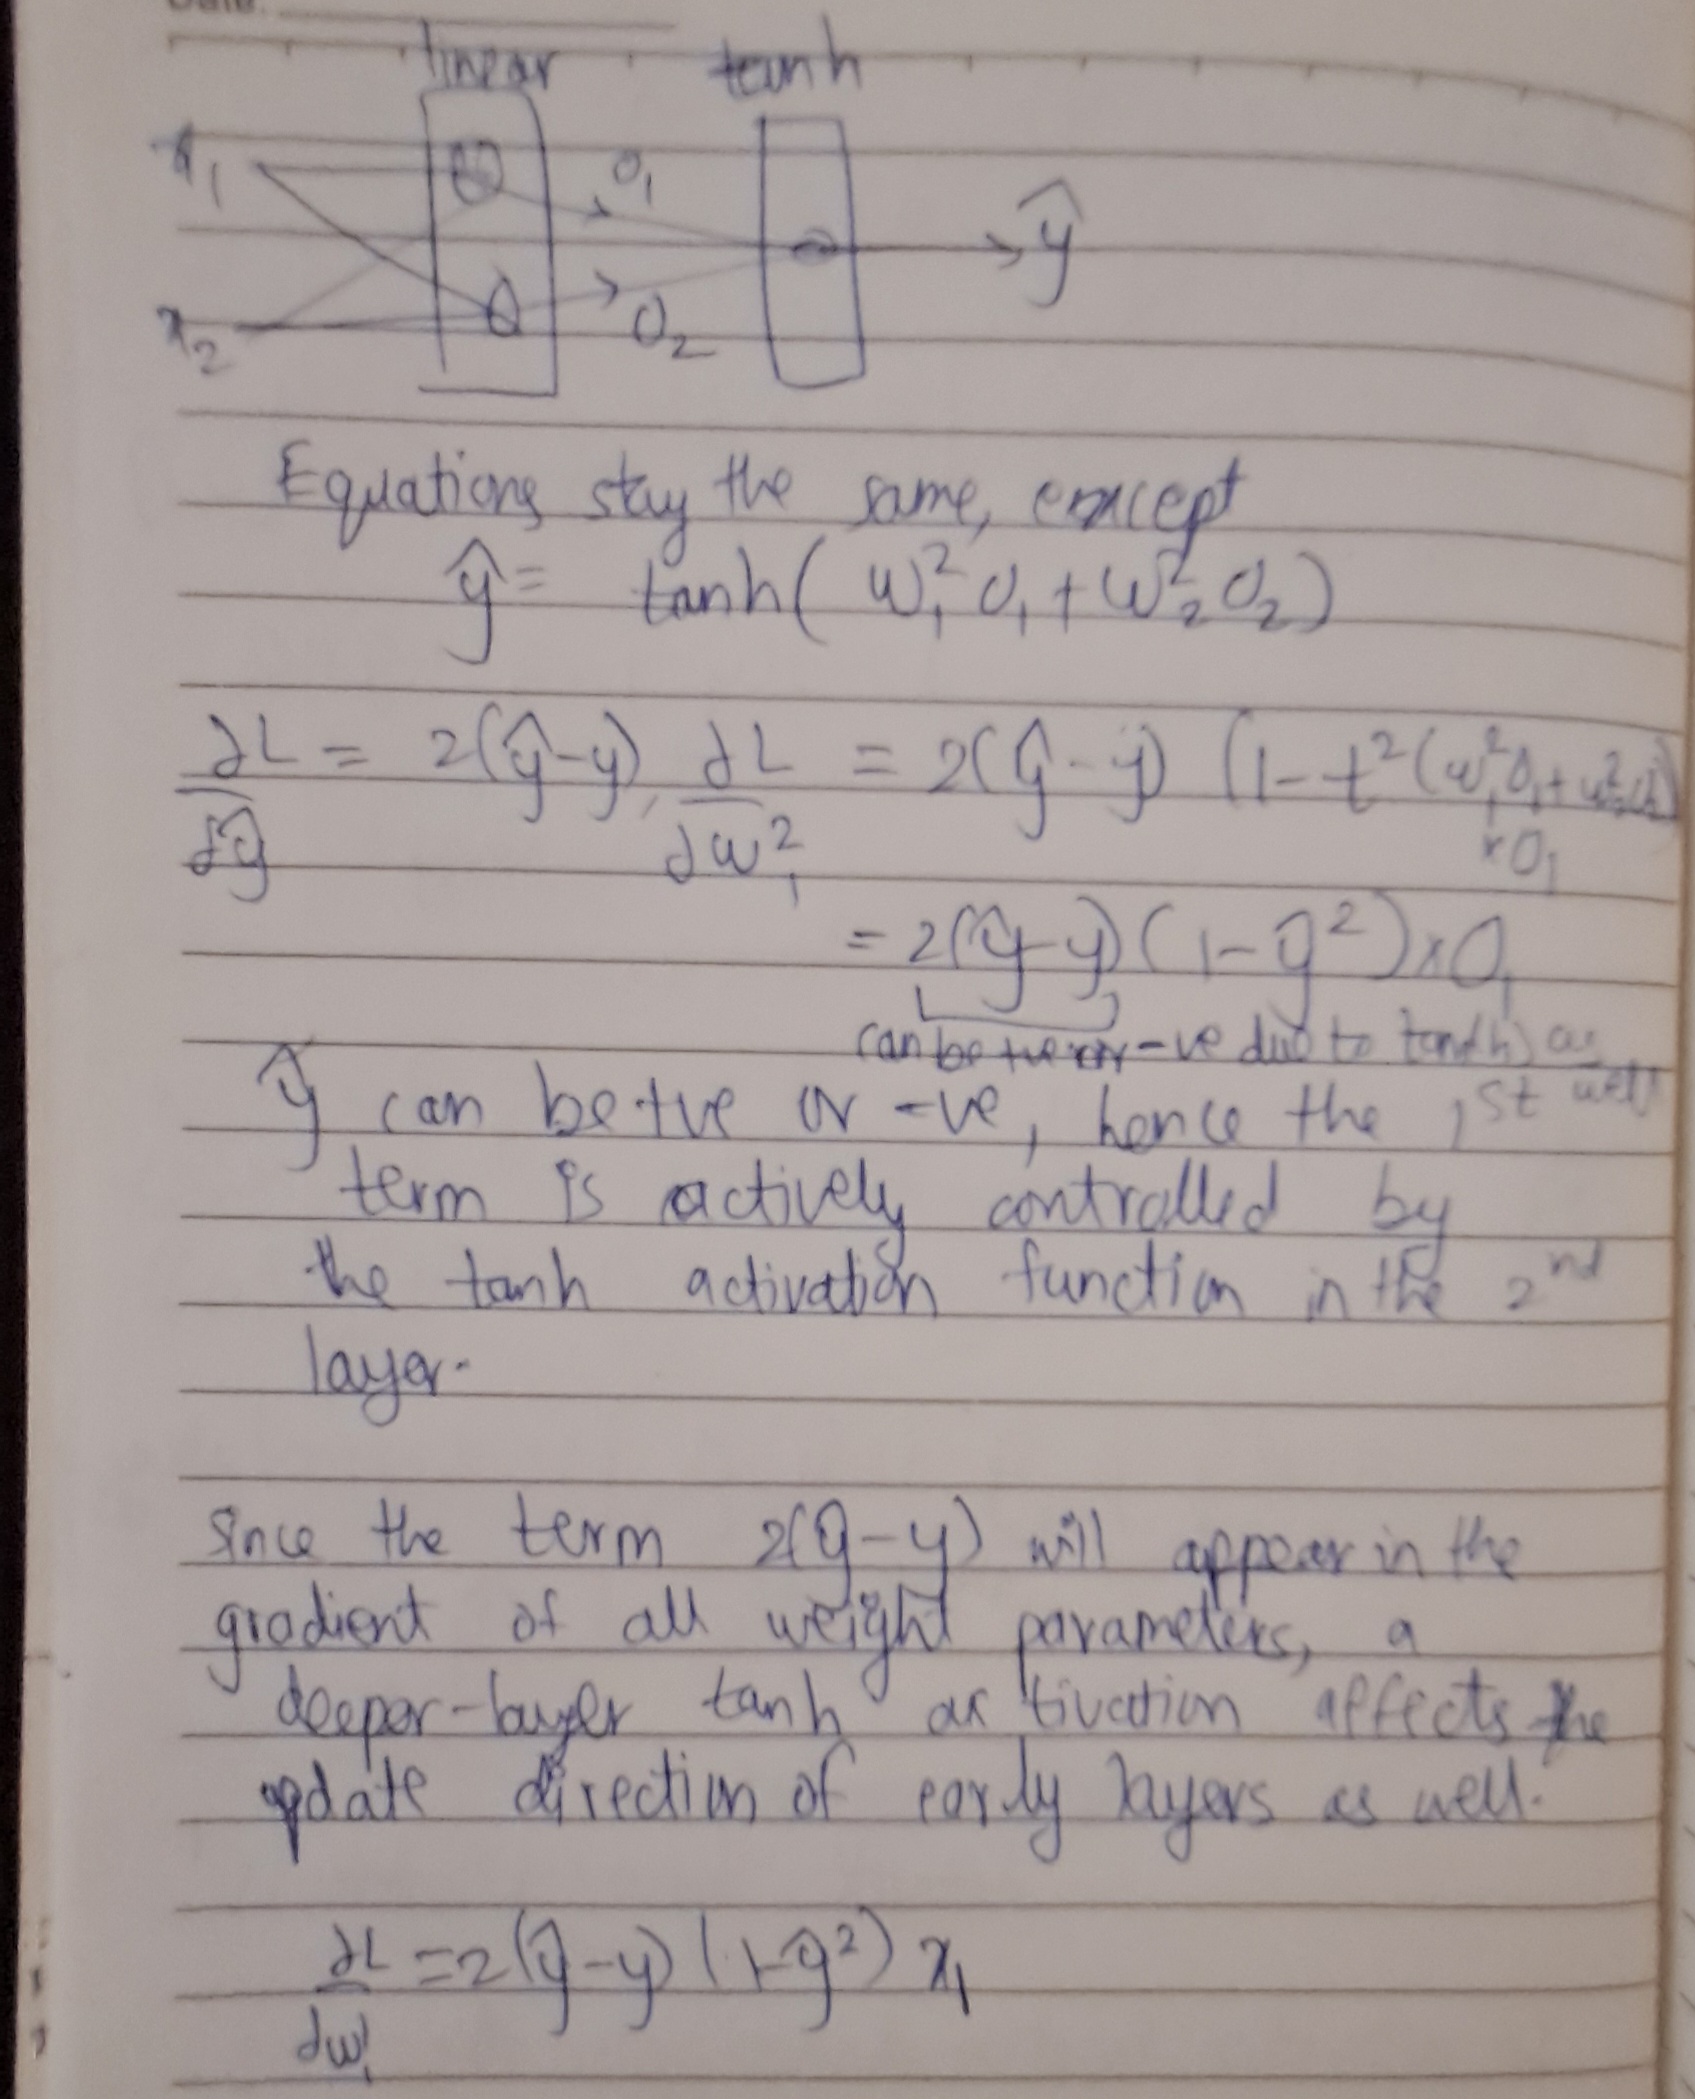 Date:
linear tanh
x₁ O₁
ŷ
x₂ O₂
Equations stay the same, except
ŷ = tanh( w₁² O₁ + w₂² O₂ )
∂L/∂ŷ = 2(ŷ-y), ∂L/∂w₁² = 2(ŷ-y) (1-t²(w₁²O₁+w₂²O₂)
×O₁
= 2(ŷ-y)(1-ŷ²)×O₁
can be +ve or -ve due to tanh) as
well
ŷ can be +ve or -ve, hence the 1st
term is actively controlled by
the tanh activation function in the 2nd
layer.
Since the term 2(ŷ-y) will appear in the
gradient of all weight parameters, a
deeper-layer tanh activation affects the
update direction of early layers as well.
∂L/∂w₁¹ = 2(ŷ-y)(1-ŷ²) x₁